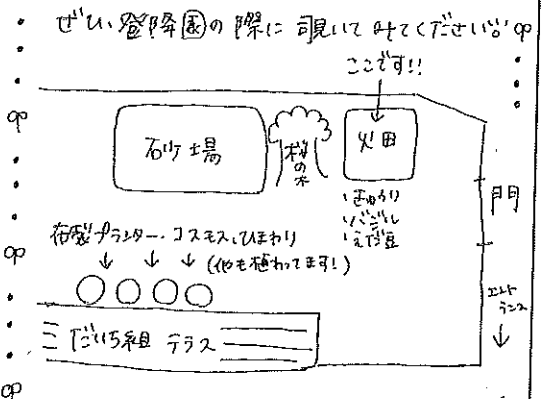 ぜひ、登降園の際に覗いてみてください。
ここです!!
砂場
桜の木
畑
・きゅうり
・バジル
・えだ豆
門
布製プランター・コスモス、ひまわり
(他も植わってます!)
エントランス
だいち組 テラス